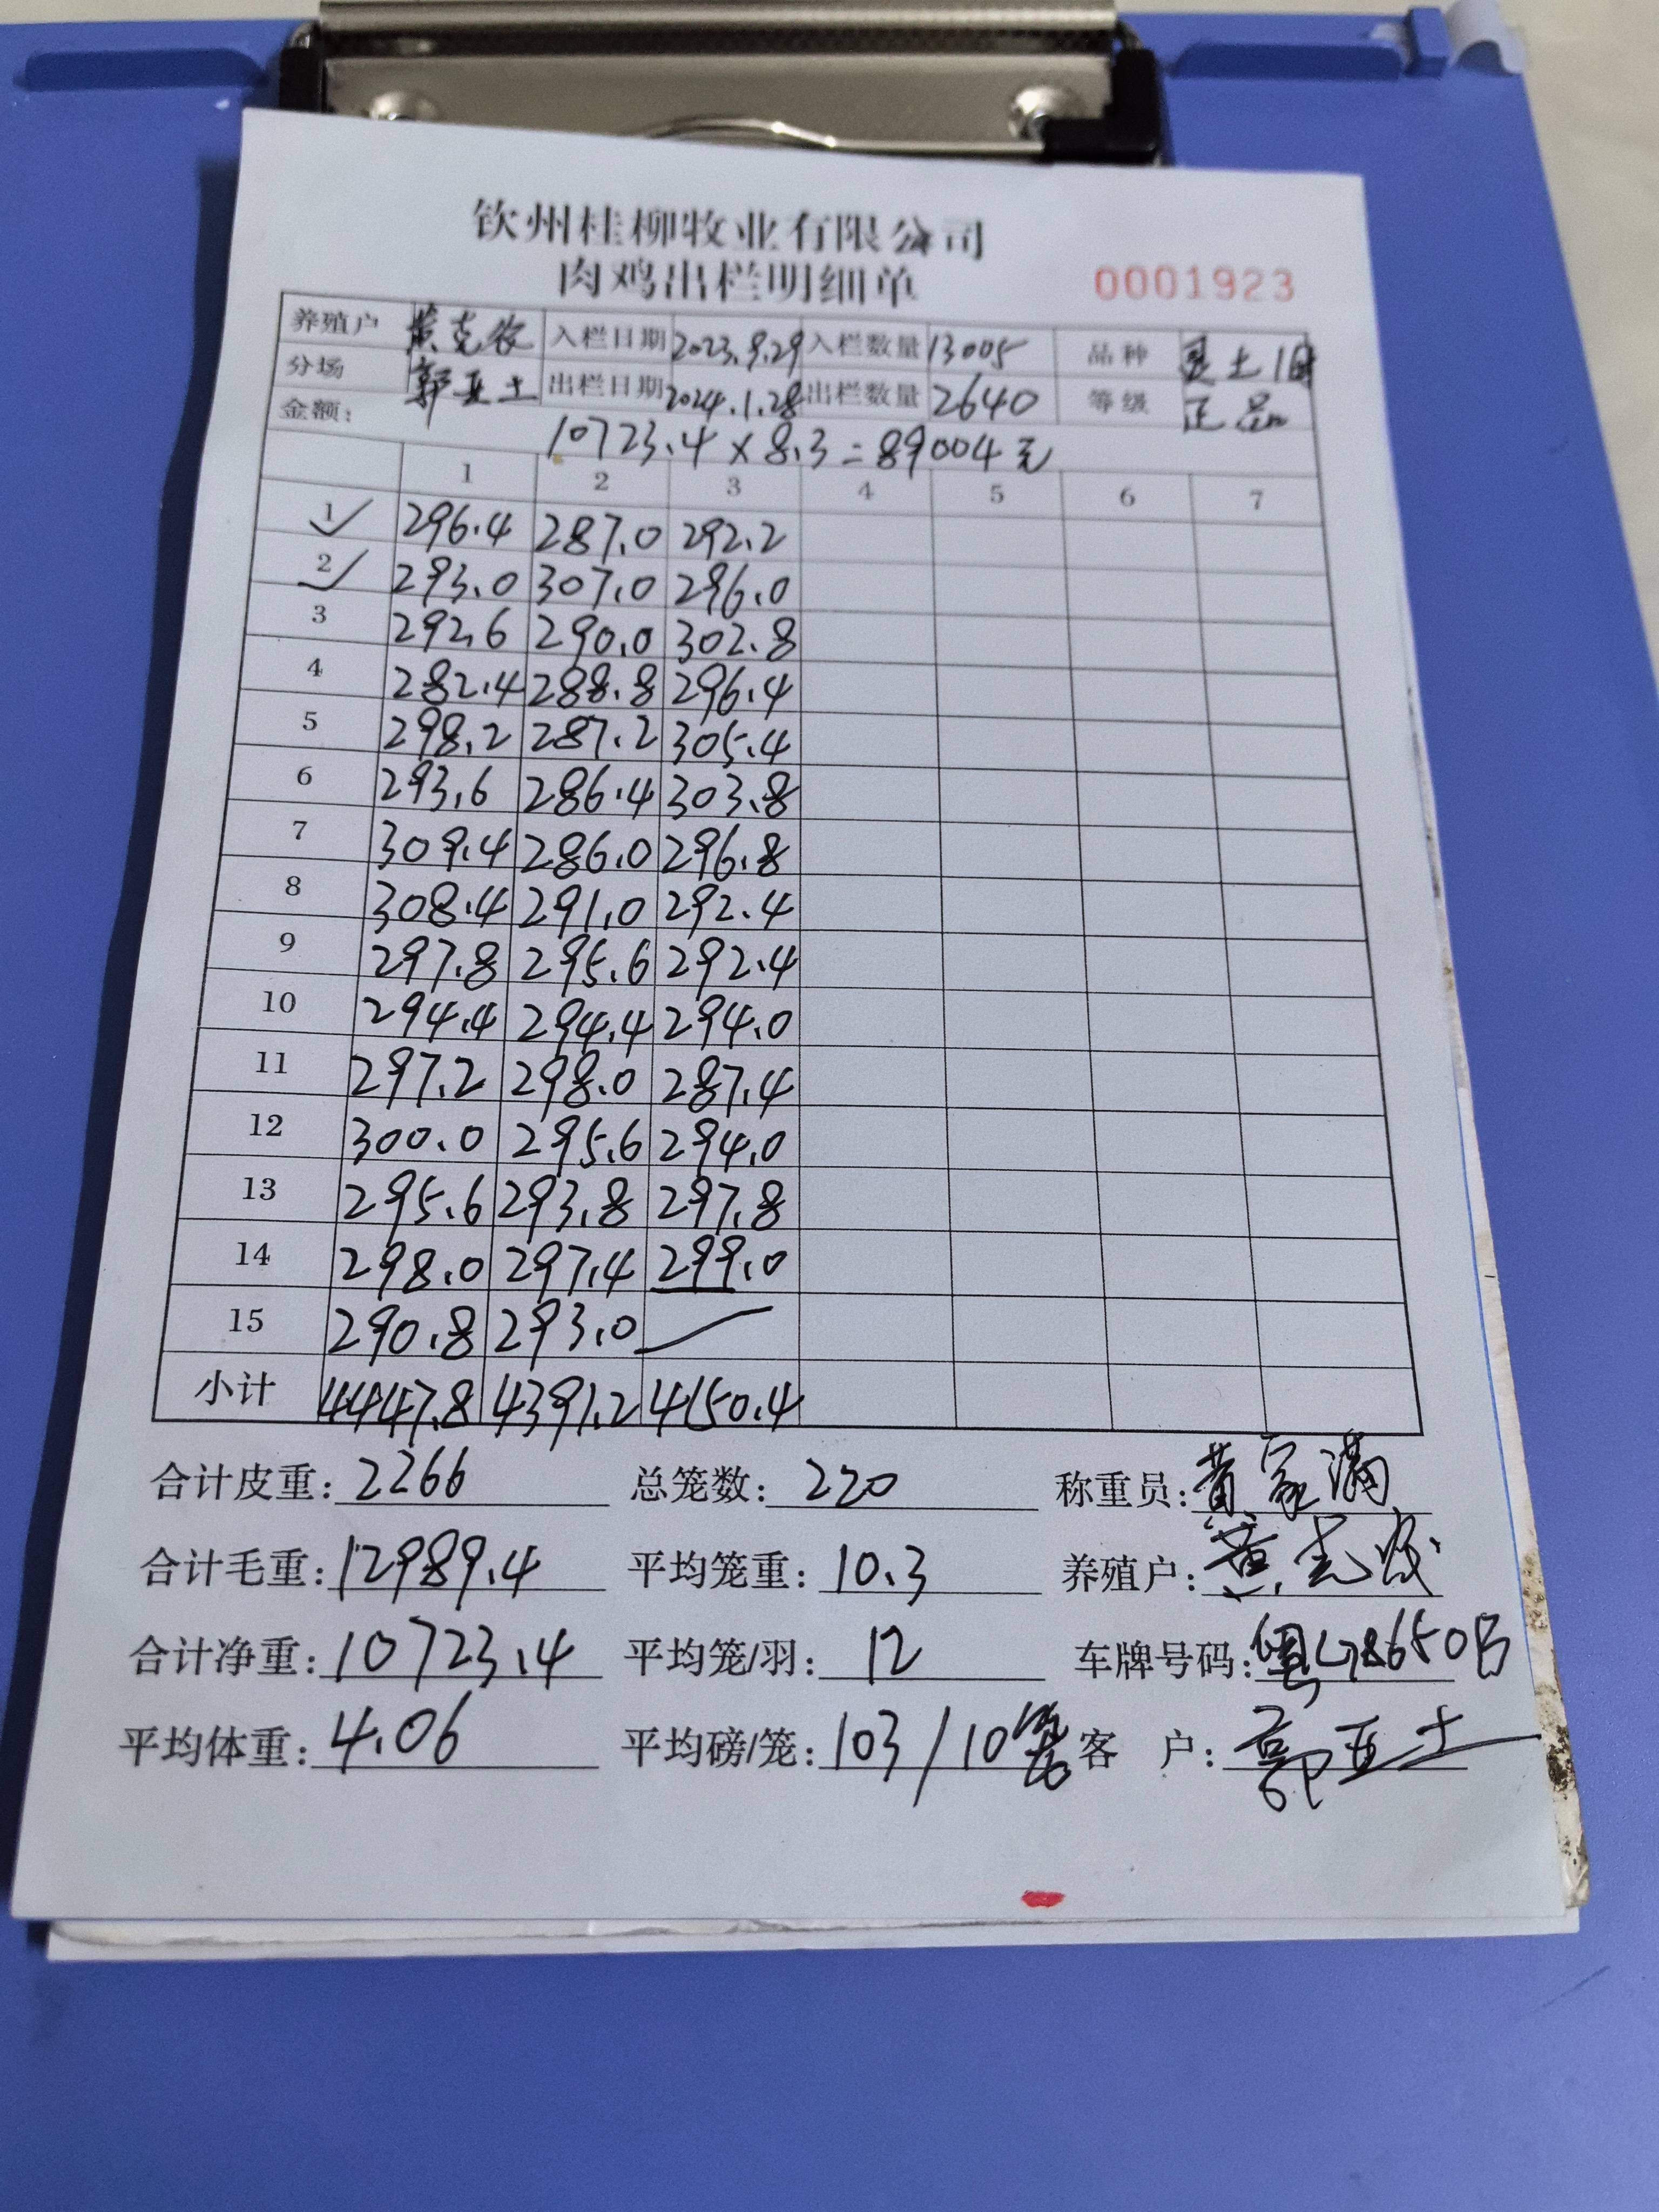 钦州桂柳牧业有限公司
肉鸡出栏明细单 0001923
养殖户 黄克农 入栏日期 2023.9.29 入栏数量 13005 品种 土1
分场 郭亚土 出栏日期 2024.1.28 出栏数量 2640 等级 正品
金额: 10723.4×8.3=89004元
1 2 3 4 5 6 7
1 ✓ 296.4 287.0 292.2
2 ✓ 293.0 307.0 296.0
3 292.6 290.0 302.8
4 282.4 288.8 296.4
5 298.2 287.2 305.4
6 293.6 286.4 303.8
7 309.4 286.0 296.8
8 308.4 291.0 292.4
9 297.8 295.6 292.4
10 294.4 294.4 294.0
11 297.2 298.0 287.4
12 300.0 295.6 294.0
13 295.6 293.8 297.8
14 298.0 297.4 299.0
15 290.8 293.0
小计 4447.8 4391.2 4150.4
合计皮重: 2266 总笼数: 220 称重员: 黄家满
合计毛重: 12989.4 平均笼重: 10.3 养殖户: 黄克农
合计净重: 10723.4 平均笼/羽: 12 车牌号码:
平均体重: 4.06 平均磅/笼: 103/10笼 客 户: 郭亚土